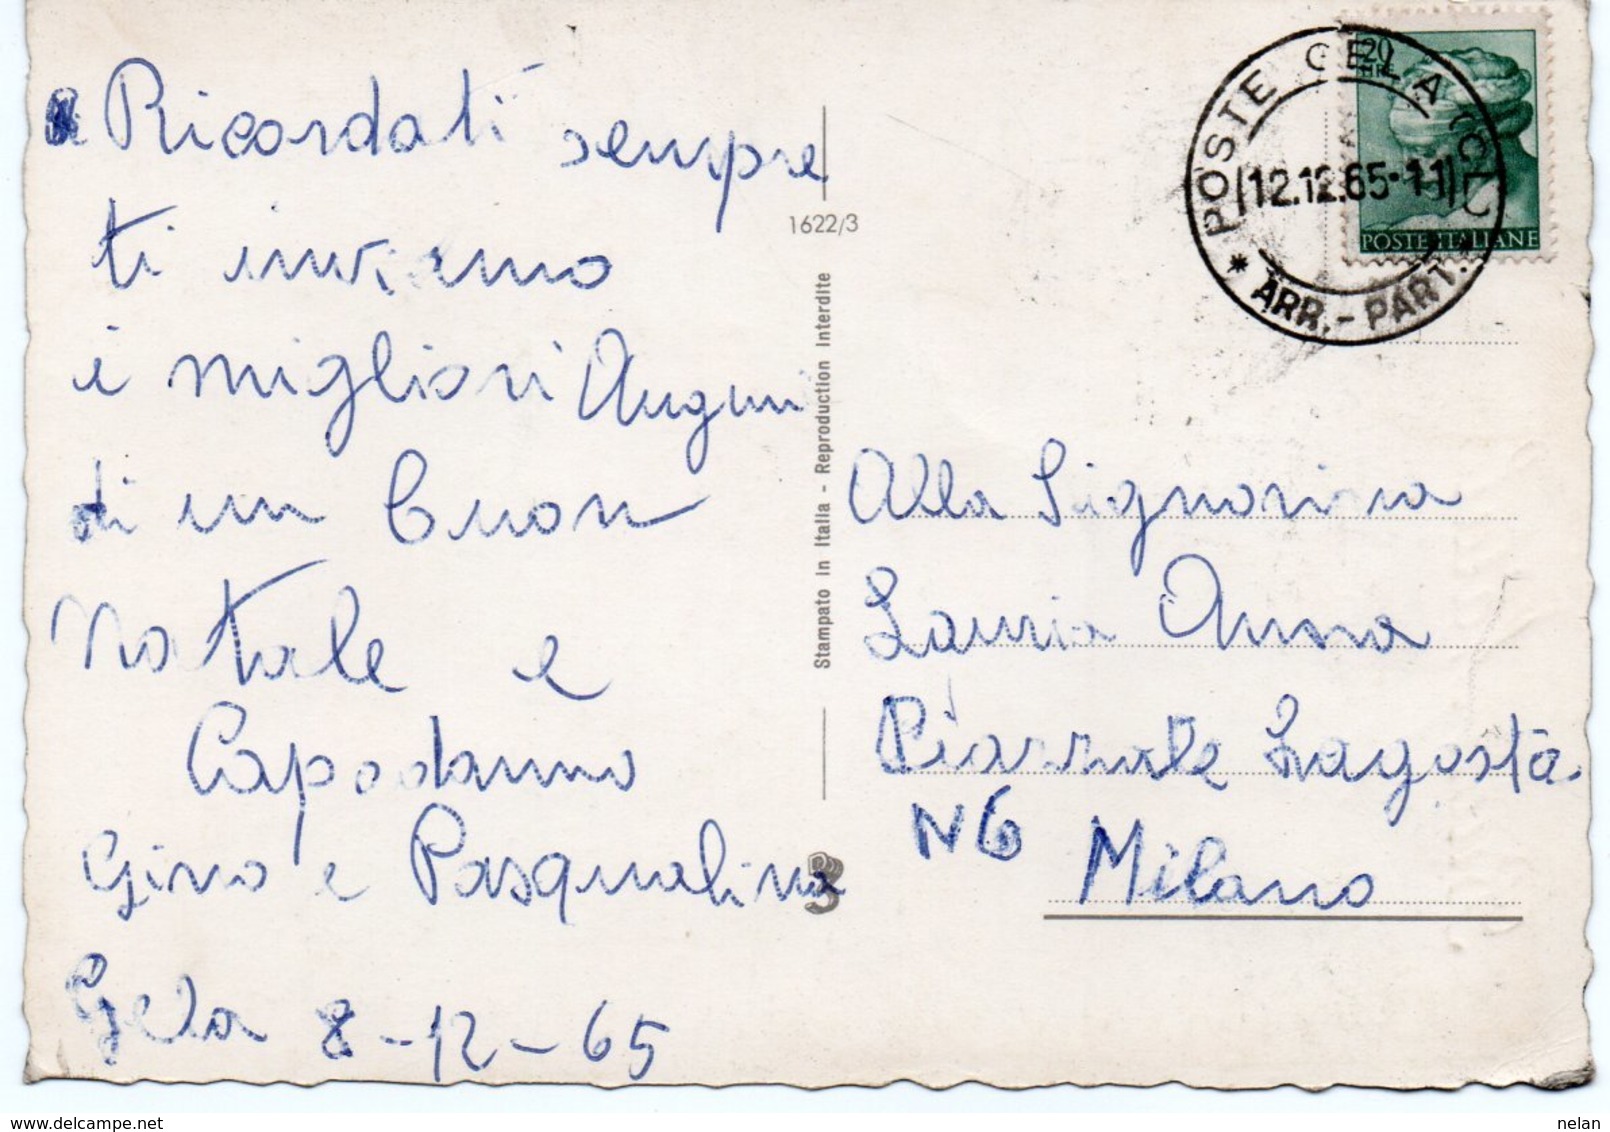 Ricordati sempre
ti inviamo
i migliori Auguri
di un buon
Natale e
Capodanno
Gino e Pasqualina
Gela 8-12-65
1622/3
Stampato in Italia - Reproduction Interdite
3
20
LIRE
POSTE ITALIANE
POSTE GELA COL
12.12.65-11
* ARR.-PART. *
Alla Signorina
Lauria Anna
Piazzale Lagosta
N6 Milano
www.delcampe.net
nelan